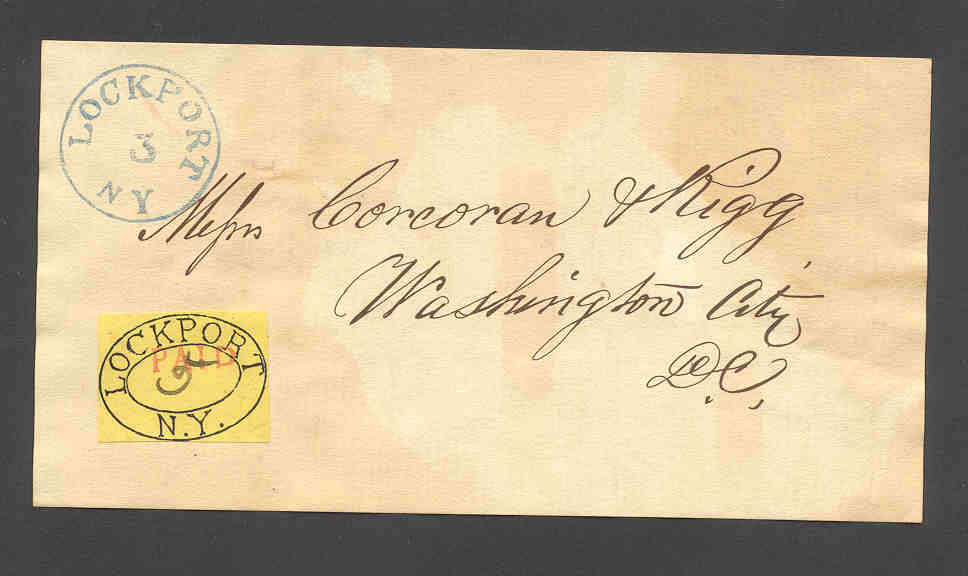 LOCKPORT
3
NY
Messrs Corcoran & Rigg
Washington City
D.C.
LOCKPORT
PAID
5
N.Y.